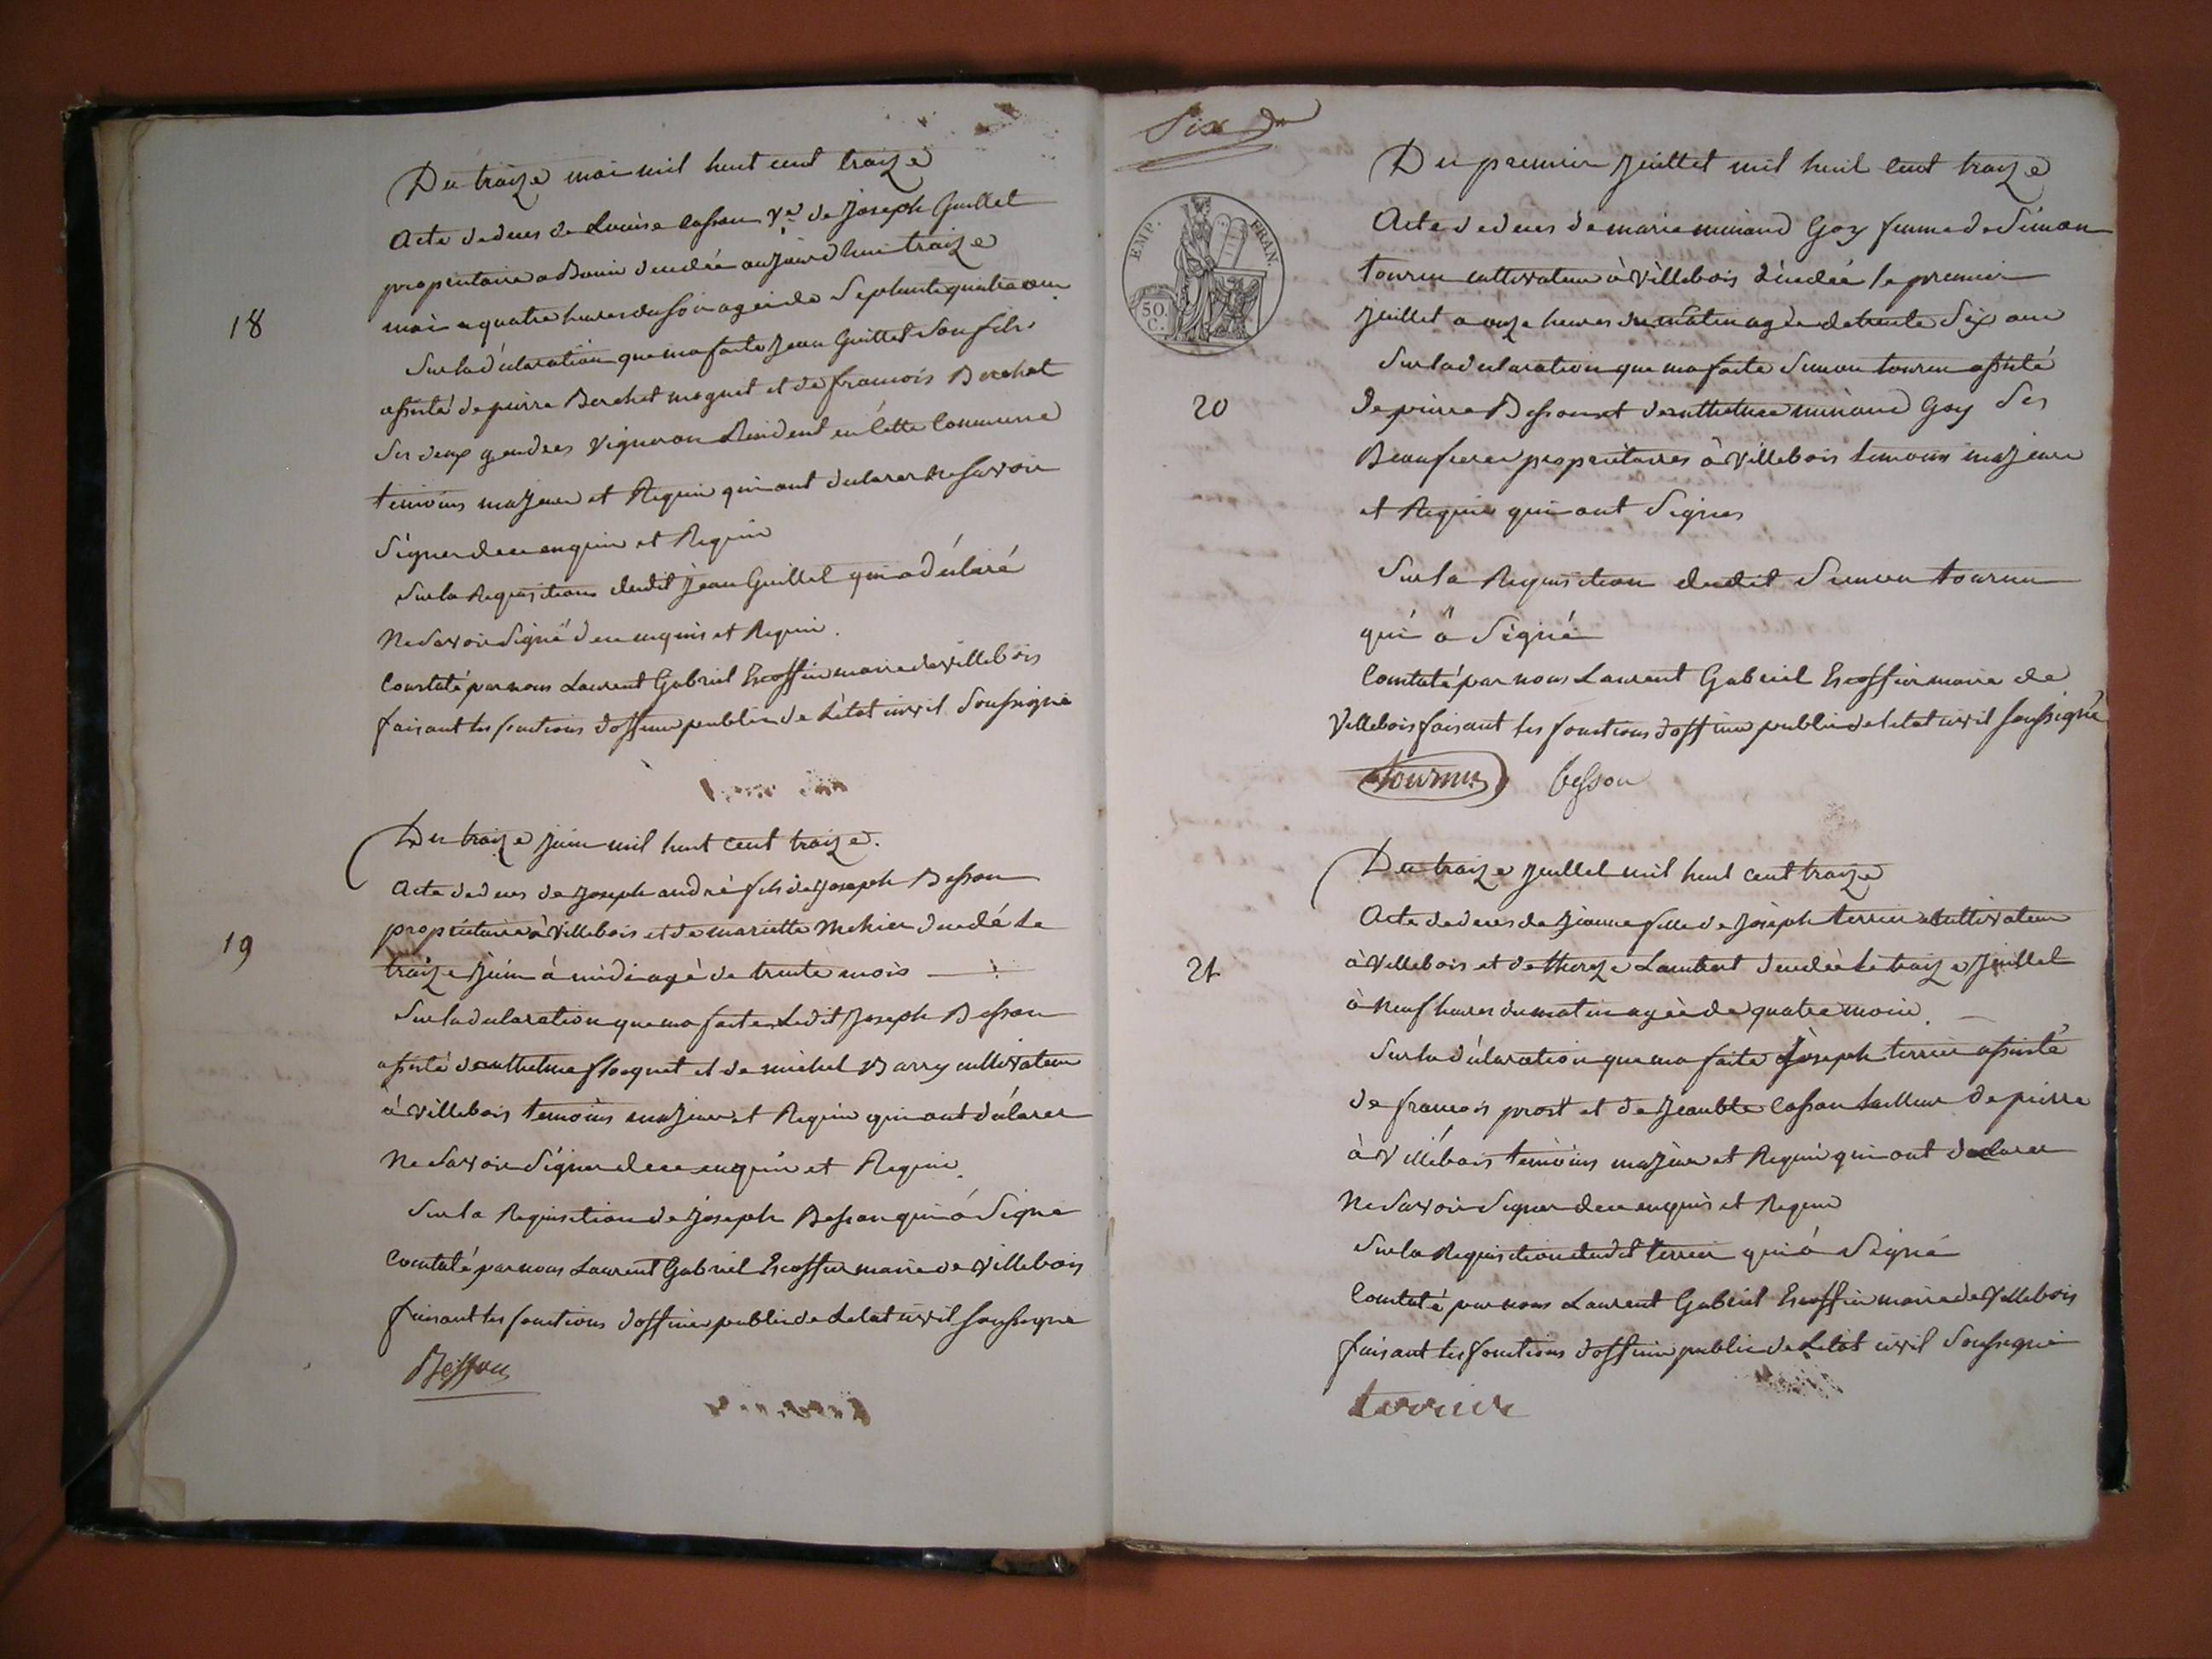 Du traize mai mil huit cent traize
Acte de deces de Louise Cassan Ve de Joseph Guillet
propriétaire a Bouis décédée aujourd'hui traize
mai a quatre heures du soir agée de Septente quatre ans
18
Sur la déclaration que ma faite Jean Guillet Son fils
assisté de pierre Berchet moguet et de francois Berchet
Ses deux gendres vigneron Résident en Cette Commune
témoins majeur et Requis qui ont déclarer ne Savoir
Signer de ce enquis et Requis
Sur la Requisition dudit Jean Guillet qui a déclaré
Ne Savoir Signé de ce enquis et Requis.
Constaté par nous Laurent Gabriel Escoffier maire de villebois
faisant les fonctions d'officier public de l'état civil Soussigné
Du traize juin mil huit cent traize.
Acte de deces de Joseph andré fils de Joseph Besson
propriétaire à Villebois et de mariette Mehier decedé Le
19
traize Juin à midi agé de trente mois
Sur la déclaration que ma faite Ledit Joseph Besson
assisté d'anthelme floquet et de michel Barry cultivateur
à Villebois temoins majeur et Requis qui ont déclarer
Ne Savoir Signer de ce enquis et Requis.
Sur la Requisition de Joseph Besson qui à Signé
Constaté par nous Laurent Gabriel Escoffier maire de Villebois
faisant les fonctions d'officier public de Letat civil soussigné
Besson
Six
EMP. FRAN.
50. C.
Du premier Juillet mil huit cent traize
Acte de deces de marie minand Goy femme de Simon
tournu cultivateur à Villebois décédée le premier
Juillet a onze heures du matin agée de trente Six ans
Sur la declaration que ma faite Simon tournu assisté
20
de pierre Besson et d'anthelme minand Goy Ses
Beaufrerer propriétaires à Villebois temoins majeur
et Requis qui ont Signes
Sur la Requisition dudit Simon tournu
qui à Signé
Constaté par nous Laurent Gabriel Escoffier maire de
Villebois faisant les fonctions d'officier public de letat civil soussigné
tournu besson
Du traize Juillet mil huit cent traize
Acte de deces de Jeanne fille de Joseph terrier Cultivateur
21
à Villebois et de thereze Lambert décédée Le traize Juillet
à Neuf heures du matin agée de quatre mois.
Sur la déclaration que ma faite Joseph terrier assisté
de francois prost et de Jean Bte Cassan tailleur de pierre
à Villebois témoins majeur et Requis qui ont déclarer
Ne Savoir Signer de ce enquis et Requis
Sur la Requisition dudit terrier qui à Signé
Constaté par nous Laurent Gabriel Escoffier maire de Villebois
faisant les fonctions d'officier public de Létat civil Soussigné
terrier